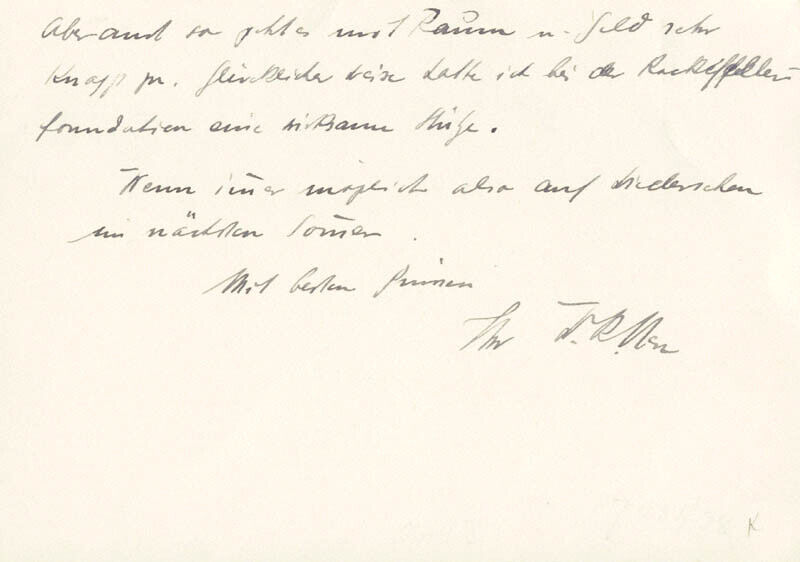 Aber auch so geht es mit Raum u. Geld sehr
knapp zu. Glücklicher weise hatte ich bei der Rockefeller
foundation eine wirksame Stütze.
Wenn im̄er möglich also auf Wiedersehen
im nächsten Som̄er.
Mit besten Grüssen
Ihr
K